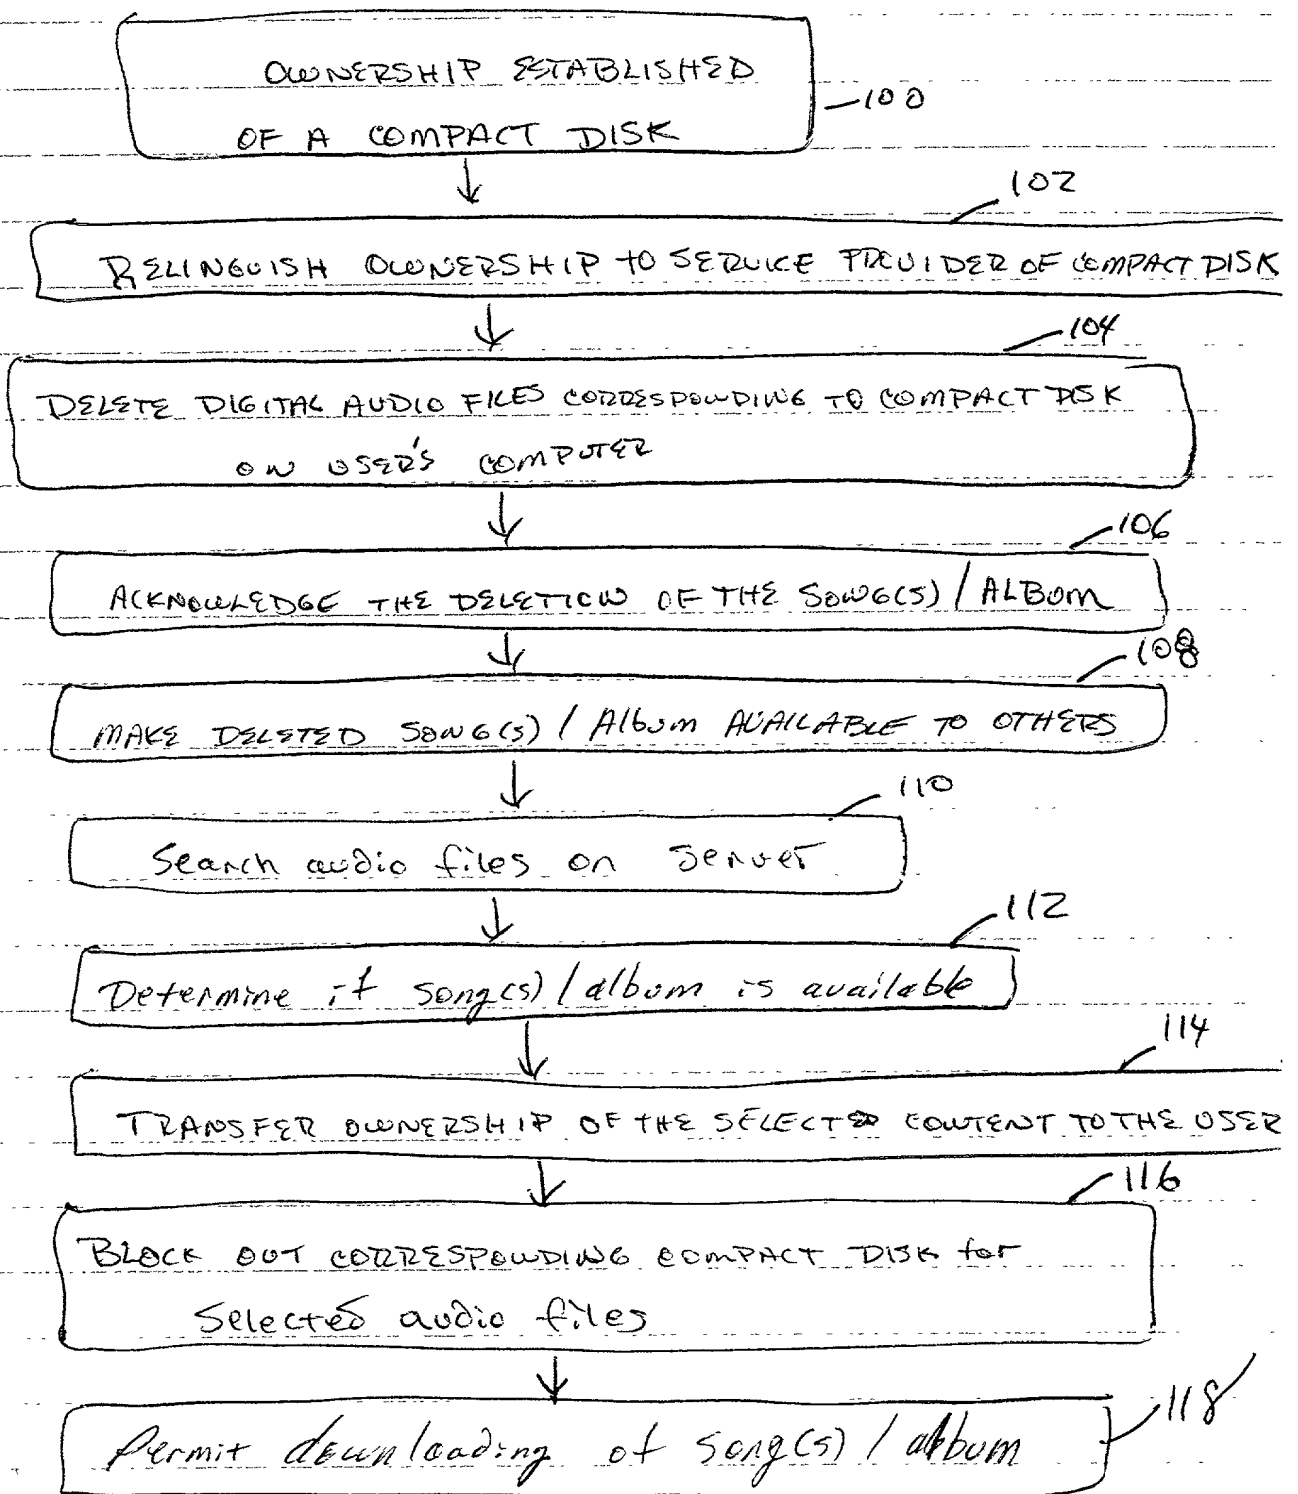 OWNERSHIP ESTABLISHED
OF A COMPACT DISK
100
102
RELINGUISH OWNERSHIP TO SERVICE PROVIDER OF COMPACT DISK
104
DELETE DIGITAL AUDIO FILES CORRESPONDING TO COMPACT DISK
ON USER'S COMPUTER
106
ACKNOWLEDGE THE DELETION OF THE SONG(S) / ALBUM
108
MAKE DELETED SONG(S) / Album AVAILABLE TO OTHERS
110
Search audio files on Server
112
Determine if song(s) / album is available
114
TRANSFER OWNERSHIP OF THE SELECTED CONTENT TO THE USER
116
BLOCK OUT CORRESPONDING COMPACT DISK for
Selected audio files
118
Permit downloading of song(s) / album